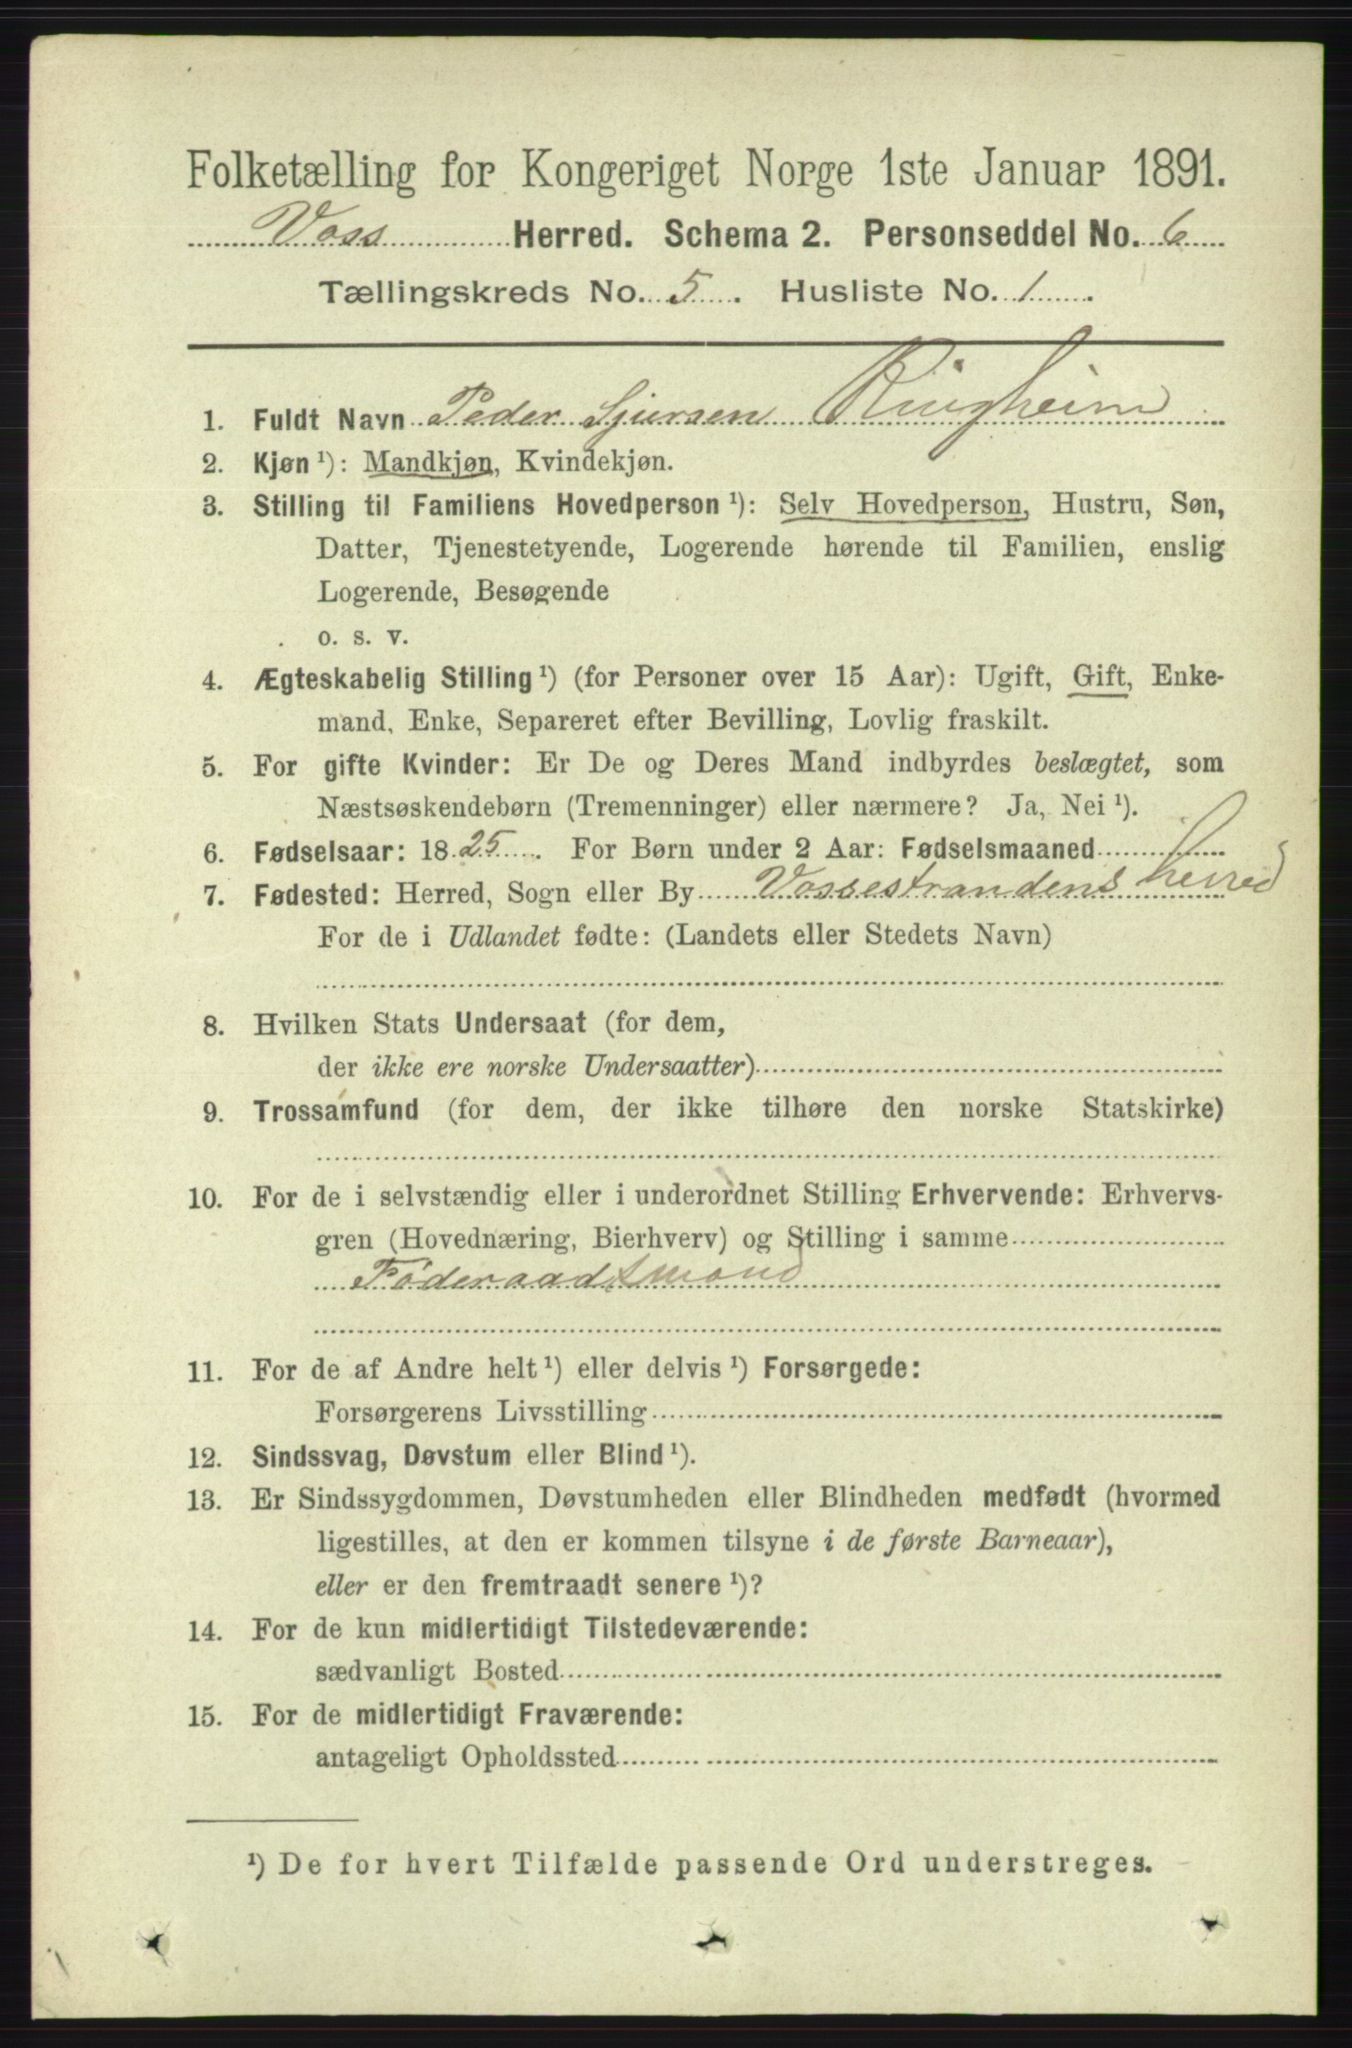 Folketælling for Kongeriget Norge 1ste Januar 1891.
Voss Herred. Schema 2. Personseddel No. 6
Tællingskreds No. 5. Husliste No. 1.
1. Fuldt Navn Peder Sjursen Ringheim
2. Kjøn ¹): Mandkjøn, Kvindekjøn.
3. Stilling til Familiens Hovedperson ¹): Selv Hovedperson, Hustru, Søn,
Datter, Tjenestetyende, Logerende hørende til Familien, enslig
Logerende, Besøgende
o. s. v.
4. Ægteskabelig Stilling ¹) (for Personer over 15 Aar): Ugift, Gift, Enke-
mand, Enke, Separeret efter Bevilling, Lovlig fraskilt.
5. For gifte Kvinder: Er De og Deres Mand indbyrdes beslægtet, som
Næstsøskendebørn (Tremenninger) eller nærmere? Ja, Nei ¹).
6. Fødselsaar: 1825. For Børn under 2 Aar: Fødselsmaaned
7. Fødested: Herred, Sogn eller By Vossestrandens herred
For de i Udlandet fødte: (Landets eller Stedets Navn)
8. Hvilken Stats Undersaat (for dem,
der ikke ere norske Undersaatter)
9. Trossamfund (for dem, der ikke tilhøre den norske Statskirke)
10. For de i selvstændig eller i underordnet Stilling Erhvervende: Erhvervs-
gren (Hovednæring, Bierhverv) og Stilling i samme
Föderaadsmand
11. For de af Andre helt ¹) eller delvis ¹) Forsørgede:
Forsørgerens Livsstilling
12. Sindssvag, Døvstum eller Blind ¹).
13. Er Sindssygdommen, Døvstumheden eller Blindheden medfødt (hvormed
ligestilles, at den er kommen tilsyne i de første Barneaar),
eller er den fremtraadt senere ¹)?
14. For de kun midlertidigt Tilstedeværende:
sædvanligt Bosted
15. For de midlertidigt Fraværende:
antageligt Opholdssted
¹) De for hvert Tilfælde passende Ord understreges.